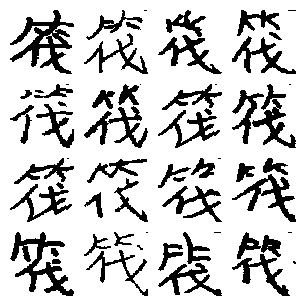 筏筏筏筏
筏筏筏筏
筏筏筏筏
筏筏筏筏